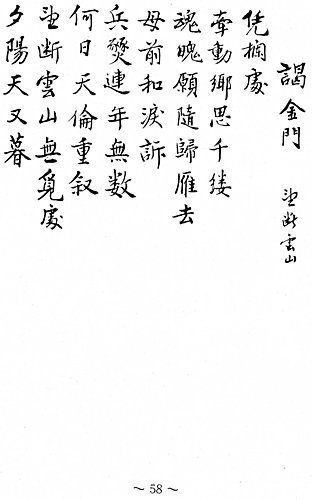 謁金門 望斷雲山
凭欄處
牽動鄉思千縷
魂魄願隨歸雁去
母前和淚訴
兵燹連年無数
何日天倫重叙
望斷雲山無覓處
夕陽天又暮
~ 58 ~